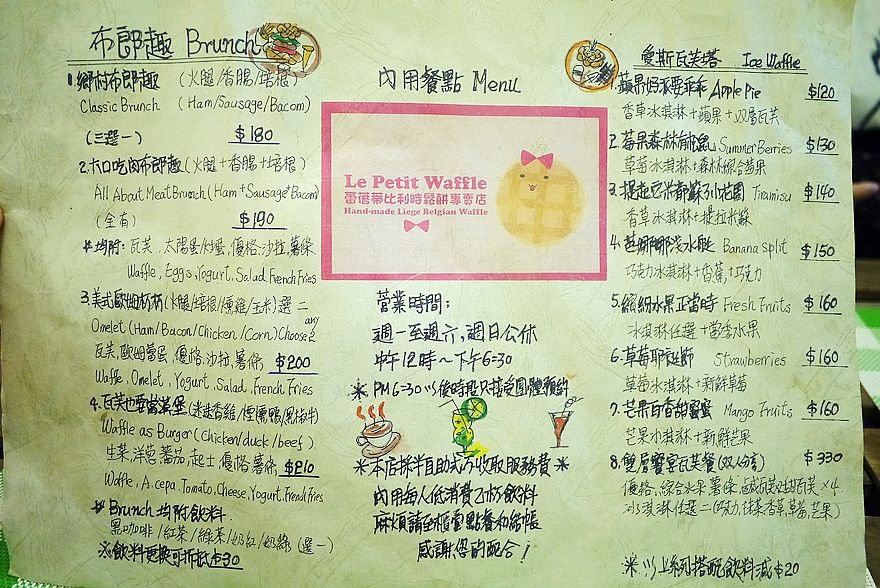 布郎趣 Brunch
1.鄉村布郎趣 (火腿/香腸/培根)
Classic Brunch (Ham/Sausage/Bacom)
(三選一) $180
2.大口吃肉布郎趣(火腿+香腸+培根)
All About Meat Brunch (Ham+Sausage+Bacom)
(全有) $190
#均附: 瓦芙、太陽蛋/炒蛋、優格、沙拉、薯條
Waffle, Eggs, Yogurt, Salad, French Fries
3.美式歐姆杯杯(火腿/培根/燻雞/玉米)選二
Omelet (Ham/Bacon/Chicken/Corn) Choose any 2
瓦芙、歐姆蛋、優格、沙拉、薯條 $200
Waffle, Omelet, Yogurt, Salad, French Fries
4.瓦芙也要當漢堡
Waffle as Burger (chicken/duck/beef)
生菜、洋蔥、蕃茄、起士、優格、薯條 $210
Waffle, A.cepa, Tomato, Cheese, Yogurt, French Fries
# Brunch 均附飲料
黑咖啡/紅茶/綠茶/奶紅/奶綠 (選一)
※飲料更換可折抵$30
內用餐點 Menu
Le Petit Waffle
蕾僶蒂比利時鬆餅專賣店
Hand-made Liege Belgian Waffle
營業時間:
週一至週六,週日公休
中午12時~下午6:30
※PM6:30以後時段只接受團體預約
※本店採半自助式不收取服務費※
內用每人低消費乙份飲料
麻煩請至櫃台點餐和結帳
感謝您的配合!
愛斯瓦芙塔 Ice Waffle
1.蘋果好不要乖乖 Apple Pie $120
香草冰淇淋+蘋果+双層瓦芙
2.莓果森林 Summer Berries $130
草莓冰淇淋+森林綜合莓果
3.提拉米 Tiramisu $140
香草冰淇淋+提拉米蘇
4. Banana split $150
巧克力冰淇淋+香蕉+巧克力
5.繽紛水果正當時 Fresh Fruits $160
冰淇淋任選+當季水果
6.草莓耶 Strawberries $160
草莓冰淇淋+新鮮草莓
7.芒果百香甜蜜蜜 Mango Fruits $160
芒果冰淇淋+新鮮芒果
8.雙層饗宴瓦芙餐(双人分享) $330
優格、綜合水果、薯條、瓦芙×4
冰淇淋任選二(巧克力、抹茶、香草、草莓、芒果)
※以上系列搭配飲料減$20